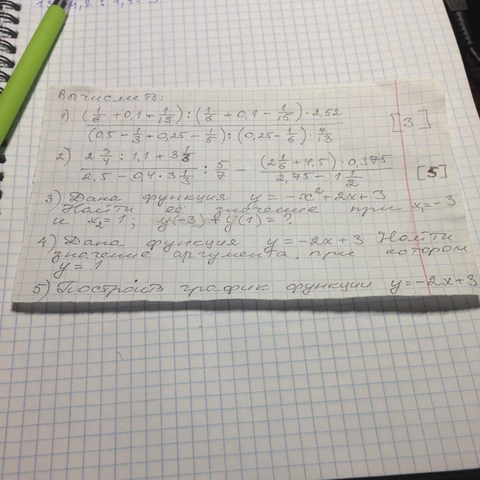 Вычислить:
1) (1/6 + 0,1 + 1/15) : (1/6 + 0,1 - 1/15) · 2,52
(0,5 - 1/3 + 0,25 - 1/5) : (0,25 - 1/6) · 7/13
[3]
2) 2 3/4 : 1,1 + 3 1/3
2,5 - 0,4 · 3 1/3
: 5/7 -
(2 1/6 + 4,5) · 0,375
2,75 - 1 1/2
[5]
3) Дана функция y = -x² + 2x + 3
Найти её значение при x₁ = -3
и x₂ = 1; y(-3) + y(1) = ?
4) Дана функция y = -2x + 3 Найти
значение аргумента, при котором
y = 1
5) Построить график функции y = -2x + 3